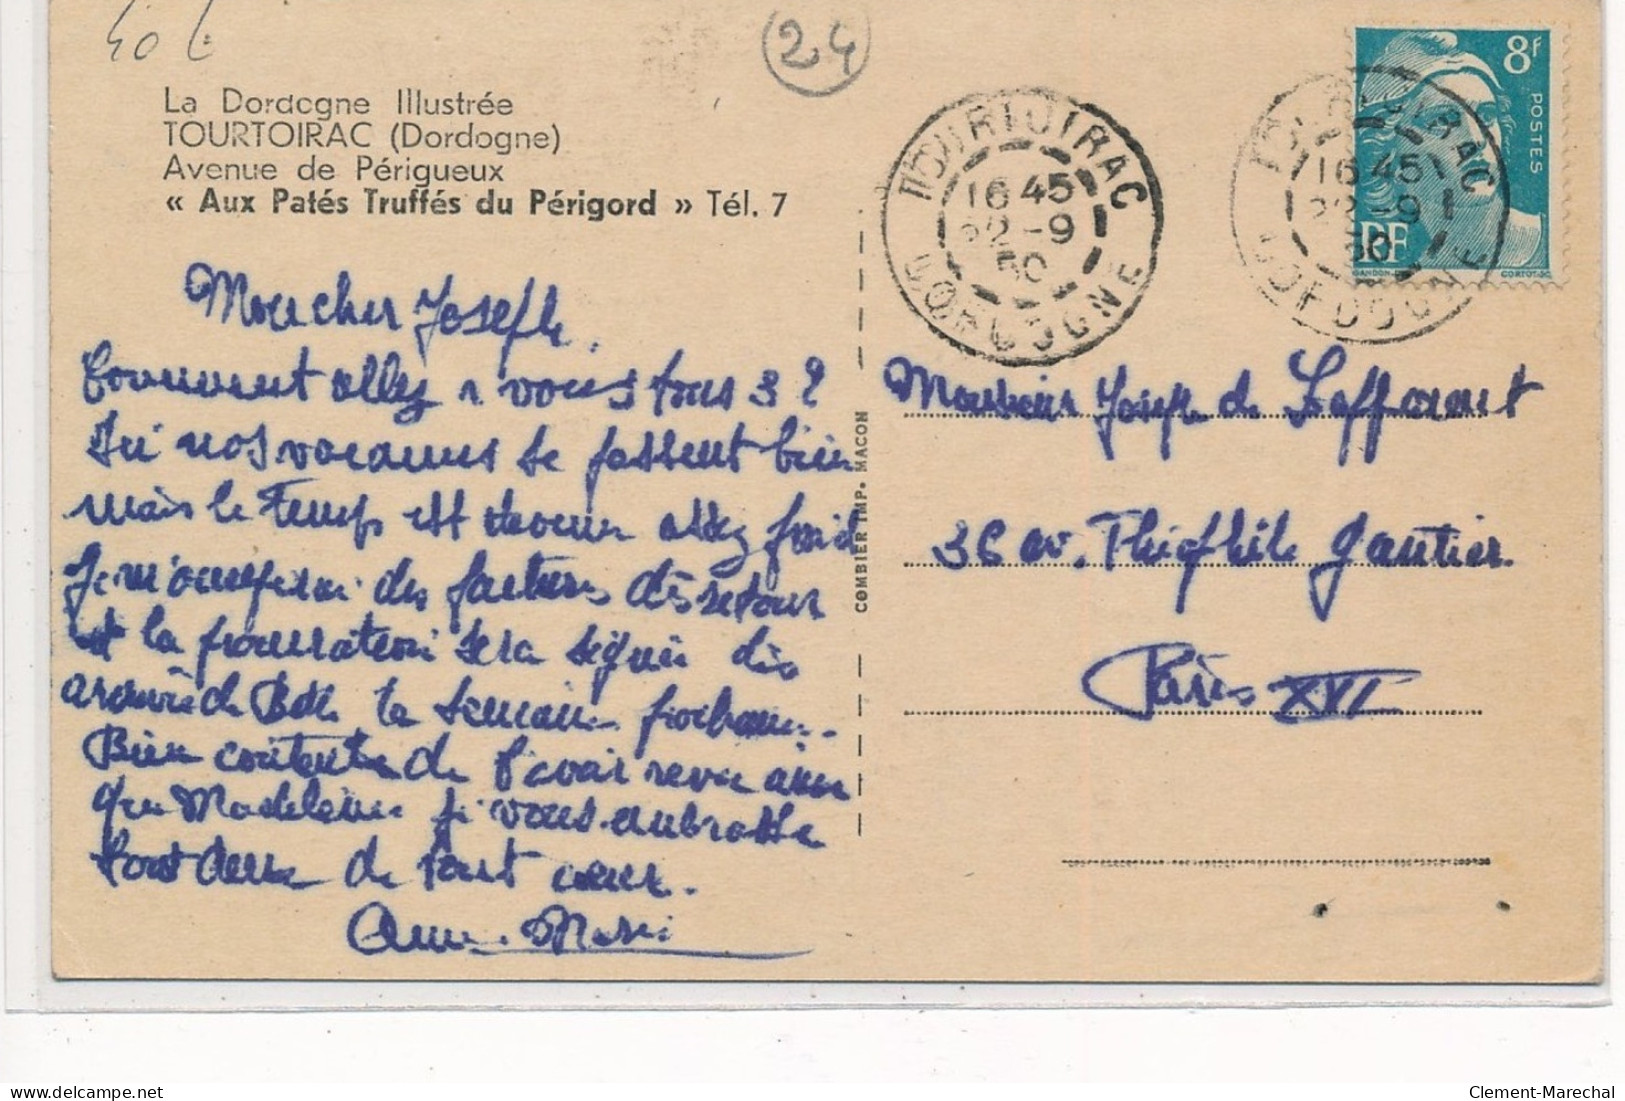 40 f
24
La Dordogne Illustrée
TOURTOIRAC (Dordogne)
Avenue de Périgueux
« Aux Patés Truffés du Périgord » Tél. 7
8F
POSTES
RF
GANDON
CORTOT SC
TOURTOIRAC
16 45
22-9
50
DORDOGNE
TOURTOIRAC
16 45
22-9
50
DORDOGNE
Mon cher Joseph.
Comment allez-vous tous 3 ?
Ici nos vacances se passent bien
mais le temps est devenu assez froid
Je m'occuperai des factures dès retour
et la procuration sera signée dès
arrivée de la semaine prochaine.
Bien contente de t'avoir revu ainsi
que Madeleine je vous embrasse
tout deux de tout cœur.
Anne-Marie
COMBIER IMP. MACON
Monsieur Joseph de Laffont
36 av. Théophile Gautier
Paris XVI
Clement-Marechal
delcampe.net